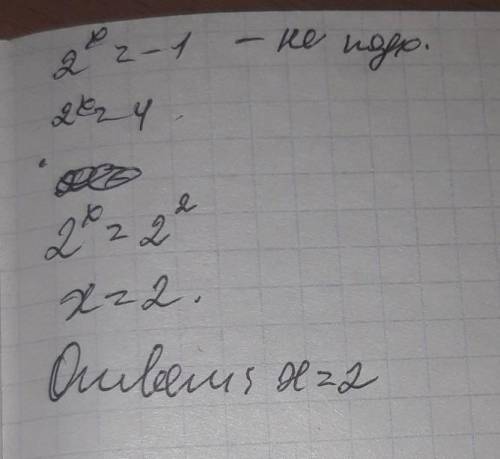 2ˣ = -1 - не подх.
2ˣ = 4.
2ˣ = 2²
x = 2.
Ответ: x = 2